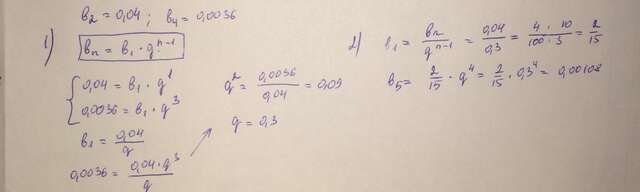 b₂ = 0,04 ; b₄ = 0,0036
1)
bₙ = b₁ · qⁿ⁻¹
{ 0,04 = b₁ · q¹
0,0036 = b₁ · q³
b₁ = 0,04/q
0,0036 = 0,04 · q³/q
q² = 0,0036/0,04 = 0,09
q = 0,3
2) b₁ = bₙ/qⁿ⁻¹ = 0,04/0,3 = 4 · 10/100 · 3 = 2/15
b₅ = 2/15 · q⁴ = 2/15 · 0,3⁴ = 0,00108